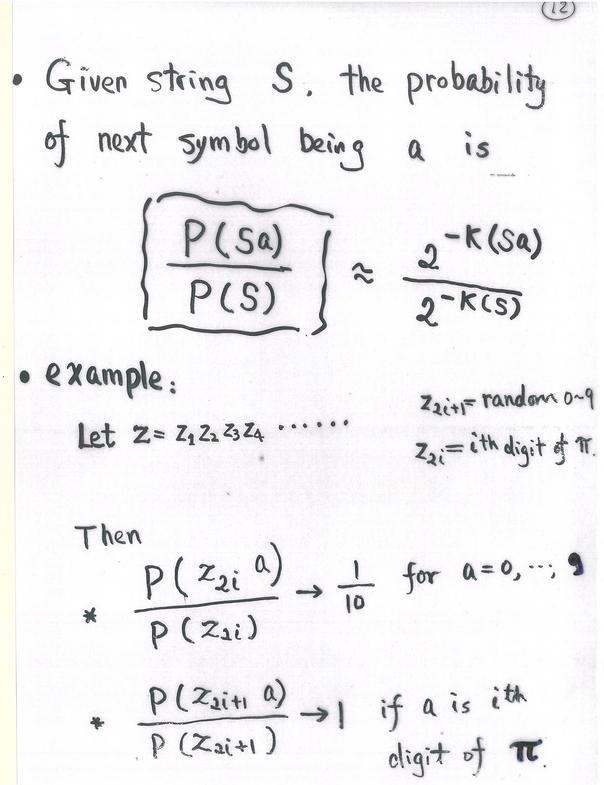 12
• Given string S, the probability
of next symbol being a is
P(Sa) / P(S) ≈ 2^-K(Sa) / 2^-K(S)
• example:
Let Z = Z1 Z2 Z3 Z4 ......
Z2i+1 = random 0~9
Z2i = ith digit of π.
Then
* P(Z2i a) / P(Z2i) → 1/10 for a = 0, ..., 9
* P(Z2i+1 a) / P(Z2i+1) → 1 if a is ith
digit of π